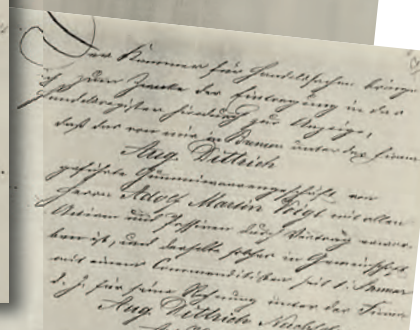 Der Kammer für Handelssachen bringe
ich zum Zwecke der Eintragung in das
Handelsregister hierdurch zur Anzeige,
daß das von mir in Bremen unter der Firma
Aug. Dittrich
geführte Gummiwaarengeschäft von
Herrn Adolf Martin Voigt mit allen
Activen und Passiven durch Vertrag erwor-
ben ist, und derselbe solches in Gemeinschaft
mit einem Commanditisten seit 1. Januar
d. J. für seine Rechnung unter der Firma
Aug. Dittrich Nachf.